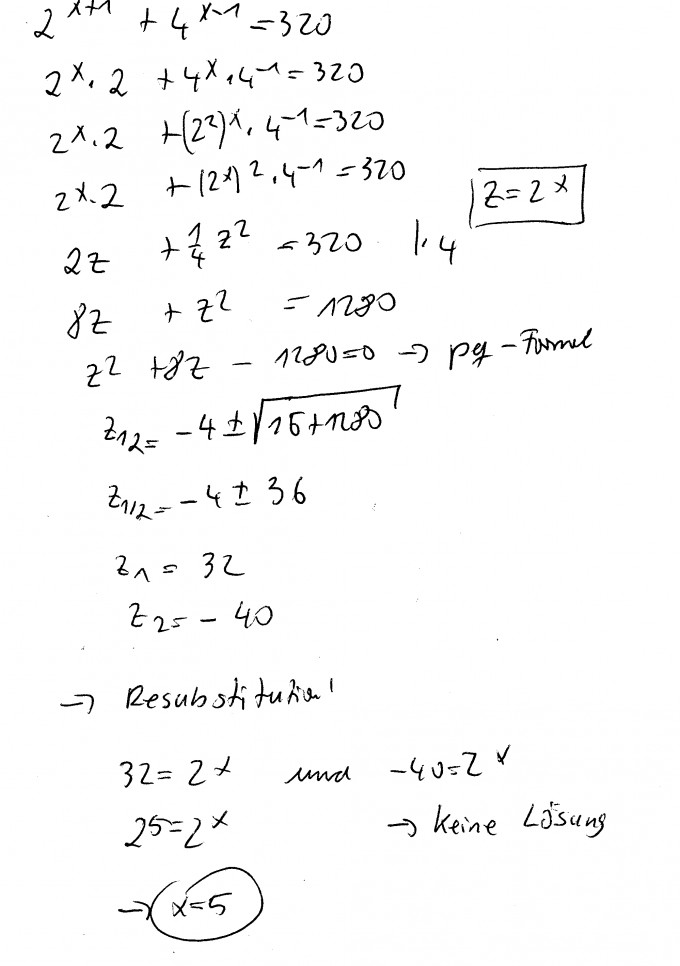 2^(x+1) + 4^(x-1) = 320
2^x · 2 + 4^x · 4^(-1) = 320
2^x · 2 + (2^2)^x · 4^(-1) = 320
2^x · 2 + (2^x)^2 · 4^(-1) = 320
z = 2^x
2z + 1/4 z^2 = 320 |· 4
8z + z^2 = 1280
z^2 + 8z - 1280 = 0 → pq-Formel
z12 = -4 ± √(16+1280)
z1/2 = -4 ± 36
z1 = 32
z2 = -40
→ Resubstitution!
32 = 2^x und -40 = 2^x
2^5 = 2^x → keine Lösung
→ x = 5